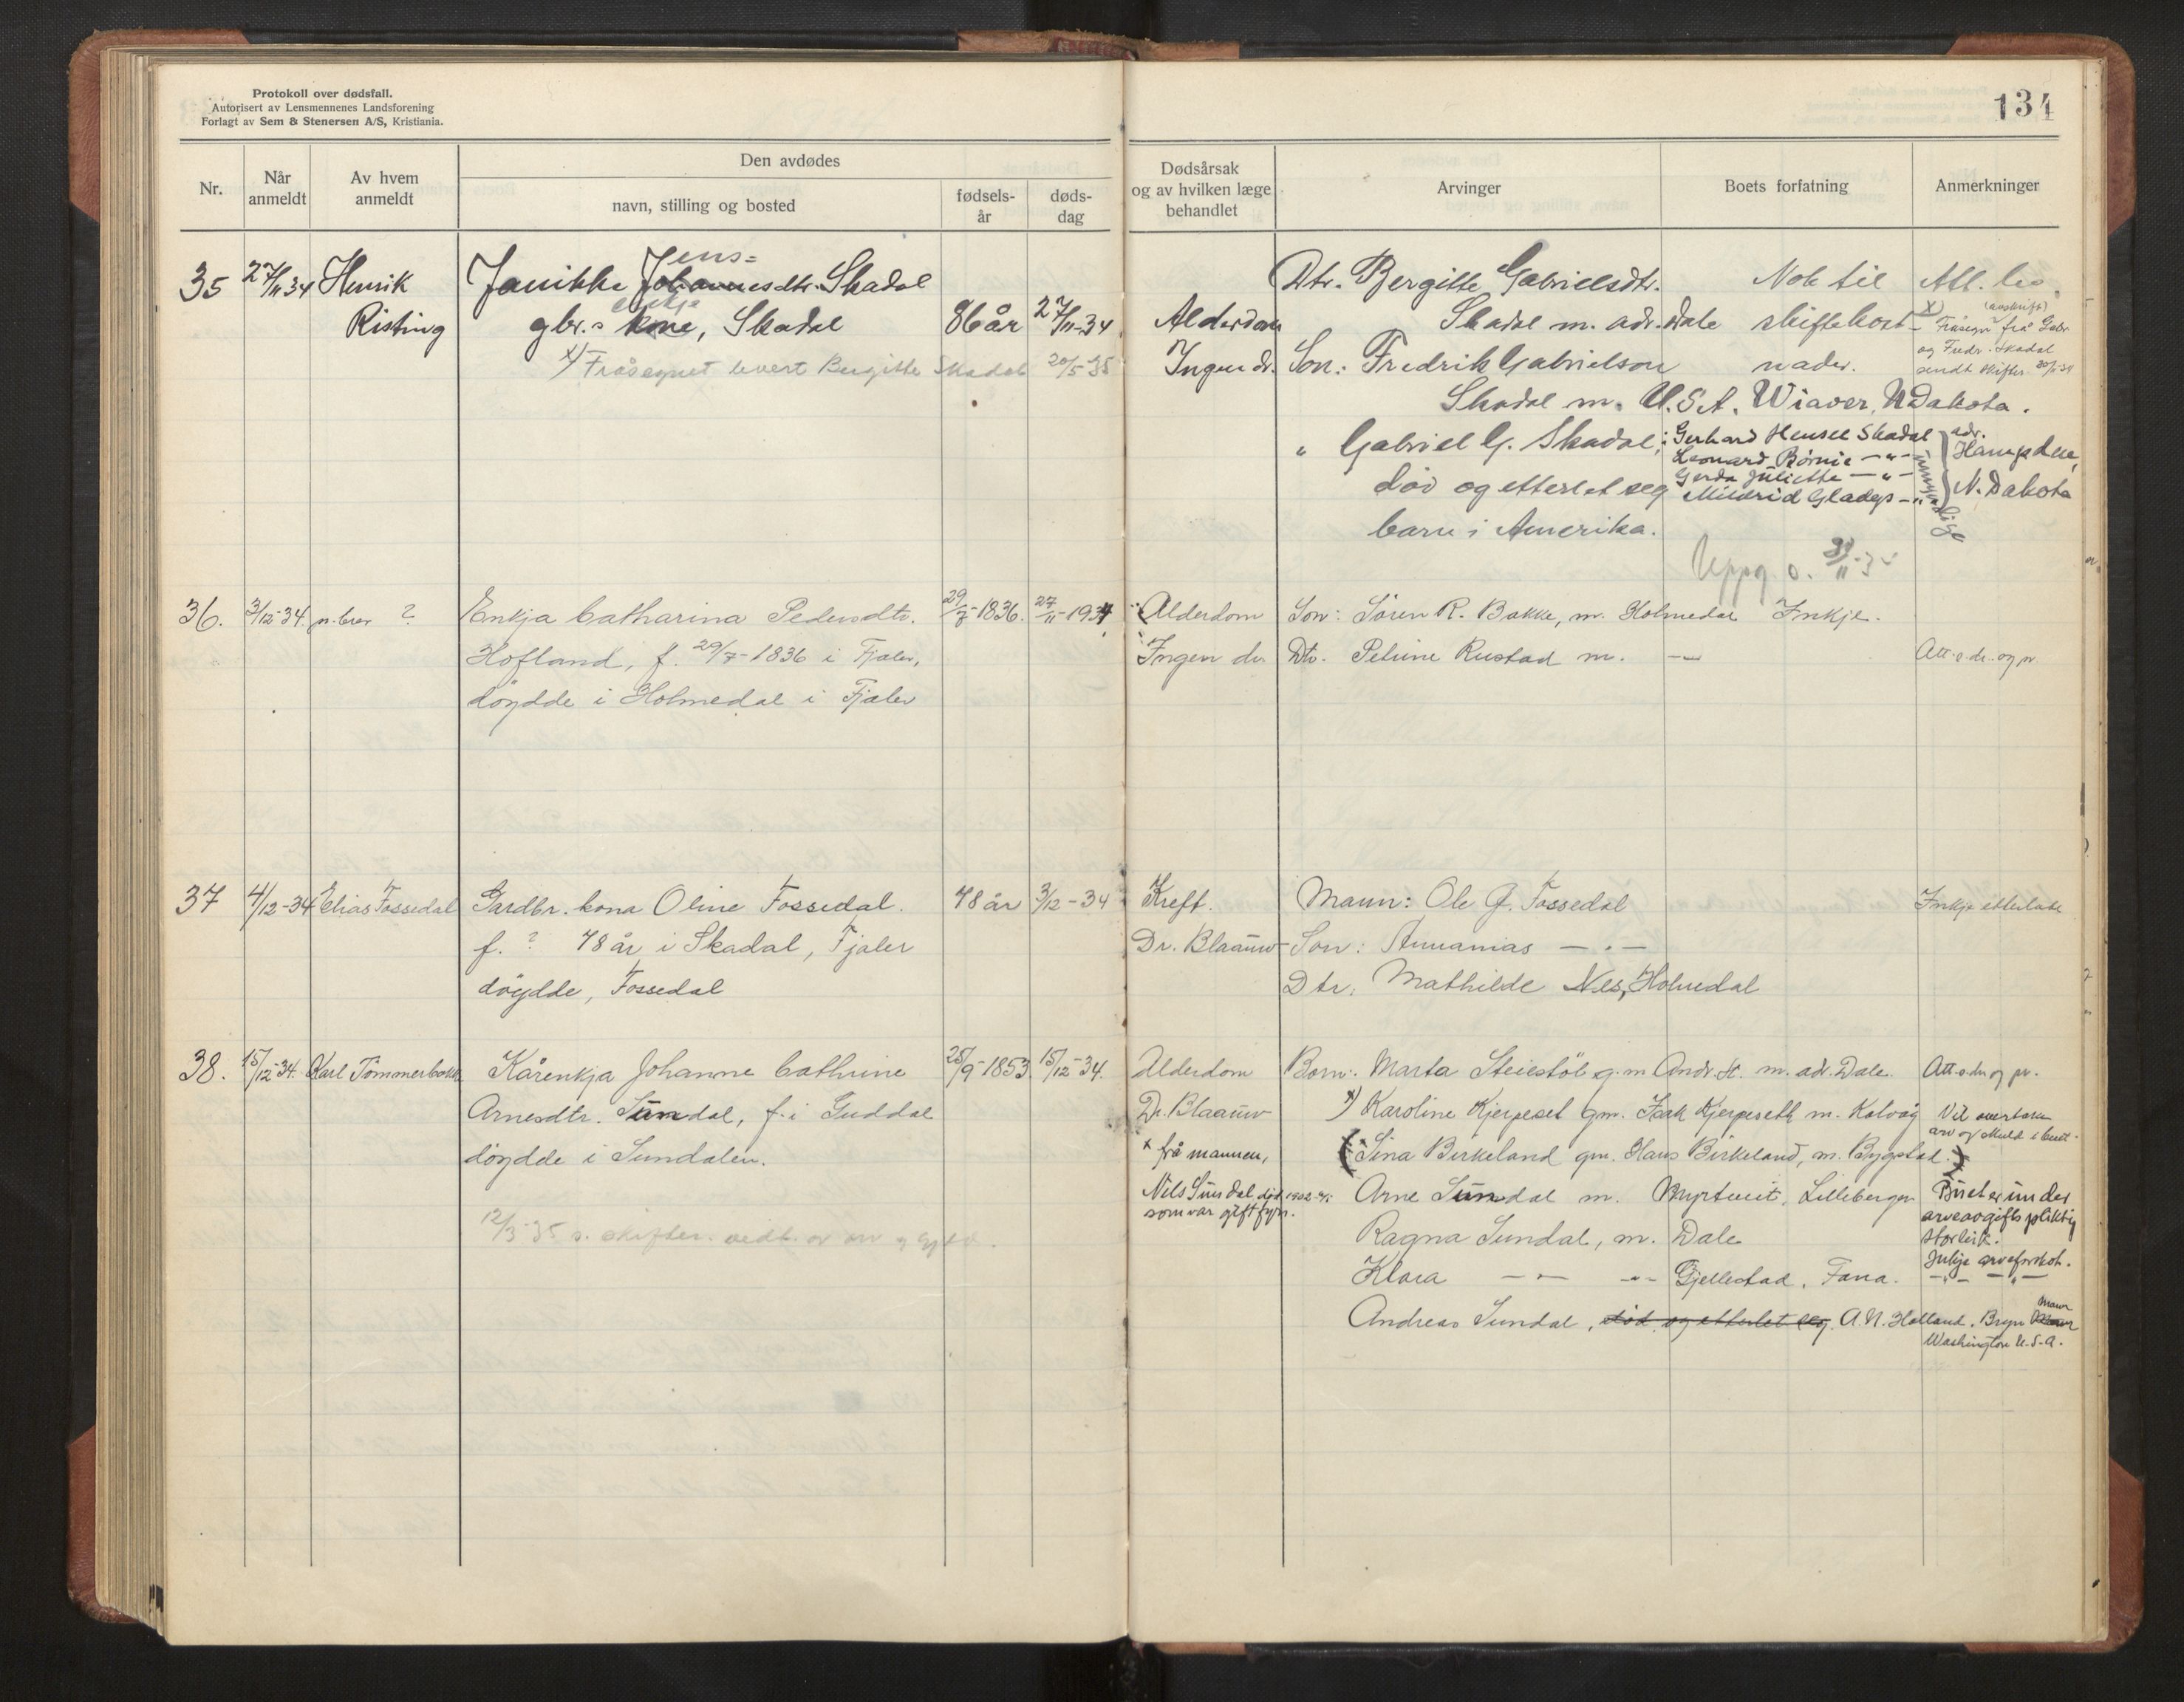 Protokoll over dødsfall.
Autorisert av Lensmennenes Landsforening
Forlagt av Sem & Stenersen A/S, Kristiania.
134
Nr.
Når anmeldt
Av hvem anmeldt
Den avdødes
navn, stilling og bosted
fødsels-år
døds-dag
Dødsårsak og av hvilken læge behandlet
Arvinger
Boets forfatning
Anmerkninger
35 27/11 34 Henrik Risting
Jens=
Janikke Johannesdtr. Skadal
enkje
gbr.s kone, Skadal 86 år 27/11-34
x) Fråsegnet levert Bergitte Skadal 20/5 35
Alderdom
Ingen dr.
Dtr. Bergitte Gabrielsdtr.
Skadal m. adr. Dale
Son: Fredrik Gabrielson
Skadal m. U.S.A. Wiaver, N Dakota.
" Gabriel G. Skadal;
død og etterlet seg
barn i Amerika.
Gerhard Hensel Skadal
Leonard Børnie — " —
Gerda Juliette — " —
Mildrid Gladys — " —
umyndige
adr.
Hampden,
N. Dakota
Nok til
skiftekost-
nader.
Att. les.
x) (avskrift)
Fråsegn frå Gabr.
og Fredr. Skadal
sendt skifter.
Uppg. o.
36. 3/12-34. pr. brev ?
Enkja Catharina Pedersdtr. 29/7-1836. 27/11-1934
Hofland, f. 29/7-1836 i Fjaler,
døydde i Holmedal i Fjaler
Alderdom
Ingen dr.
Son: Søren R. Bakke, m. Holmedal Inkje.
Dtr. Petrine Rustad m. — " —
Att. e. dr. og pr
37 4/12-34 Elias Fossedal
Gardbr. kona Oline Fossedal. 78 år 3/12-34
f. ? 78 år i Skadal, Fjaler
døydde, Fossedal
Kreft.
Dr. Blaauw
Mann: Ole G. Fossedal
Son: Annanias — " —
Dtr. Mathilde Nes, Holmedal
Inkje etterlate
38. 15/12-34. Karl Tømmerbakk
Kårenkja Johanne Cathrine 25/9-1853. 15/12-34.
Arnesdtr. Sundal, f. i Guddal
døydde i Sundalen.
12/3-35 s. skifter.
Alderdom
Dr. Blaauw
x frå mannen,
Nils Sundal død 1902
som var gift fyrr.
Born: Marta Steiestøl g.m. Andr. St. m. adr. Dale.
x) Karoline Kjerpeset gm. Isak Kjerpeseth m. Kalvåg
(x Sina Birkeland gm. Hans Birkeland, m. Bygstad.)
Arne Sundal m. Myrtveit, Lillebergen
Ragna Sundal, m. Dale
Klara — " — " — Gjellestad, Fana.
Andreas Sundal, død og etterlet seg A.N. Holland, Bryn Mawr
Washington U.S.A.
Att. e. dr. og pr.
Vil overtaka
arv og skuld i buet.
Buet er under
arveavgifts pliktig
storleik.
Inkje arveforskot.
— " — — " —